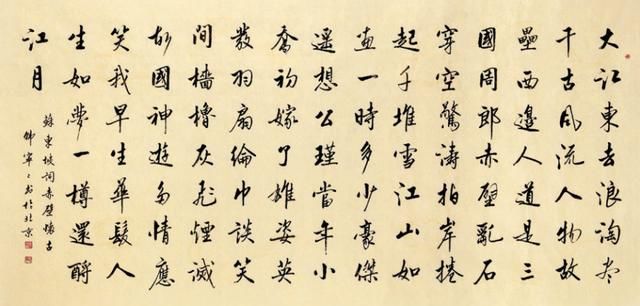 大江東去浪淘尽
千古風流人物故
壘西邊人道是三
國周郎赤壁亂石
穿空驚濤拍岸捲
起千堆雪江山如
画一時多少豪傑
遥想公瑾當年小
喬初嫁了雄姿英
發羽扇綸巾談笑
間檣櫓灰飛煙滅
故國神遊多情應
笑我早生華髮人
生如夢一樽還酹
江月
蘇東坡詞赤壁懷古
寧々书於北京